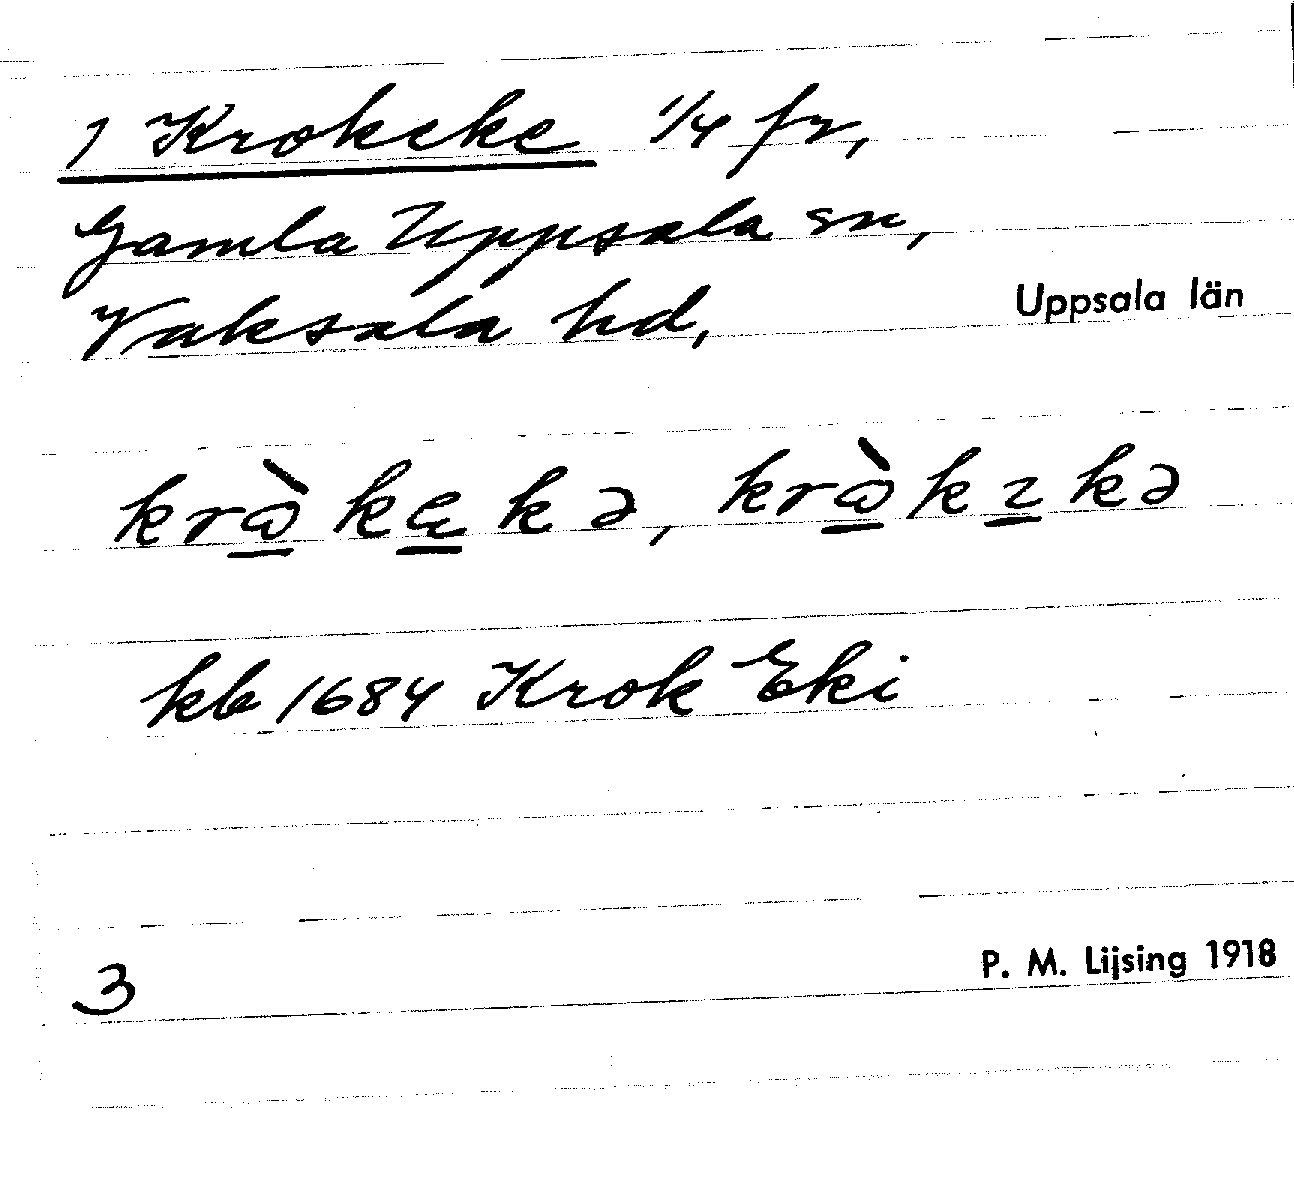 1 Krokeke 1/4 fr,
Gamla Uppsala sn,
Vaksala hd, Uppsala län
krɷ̀kękə, krɷ̀kɿkə
kb 1684 Krok Eki
3 P. M. Lijsing 1918